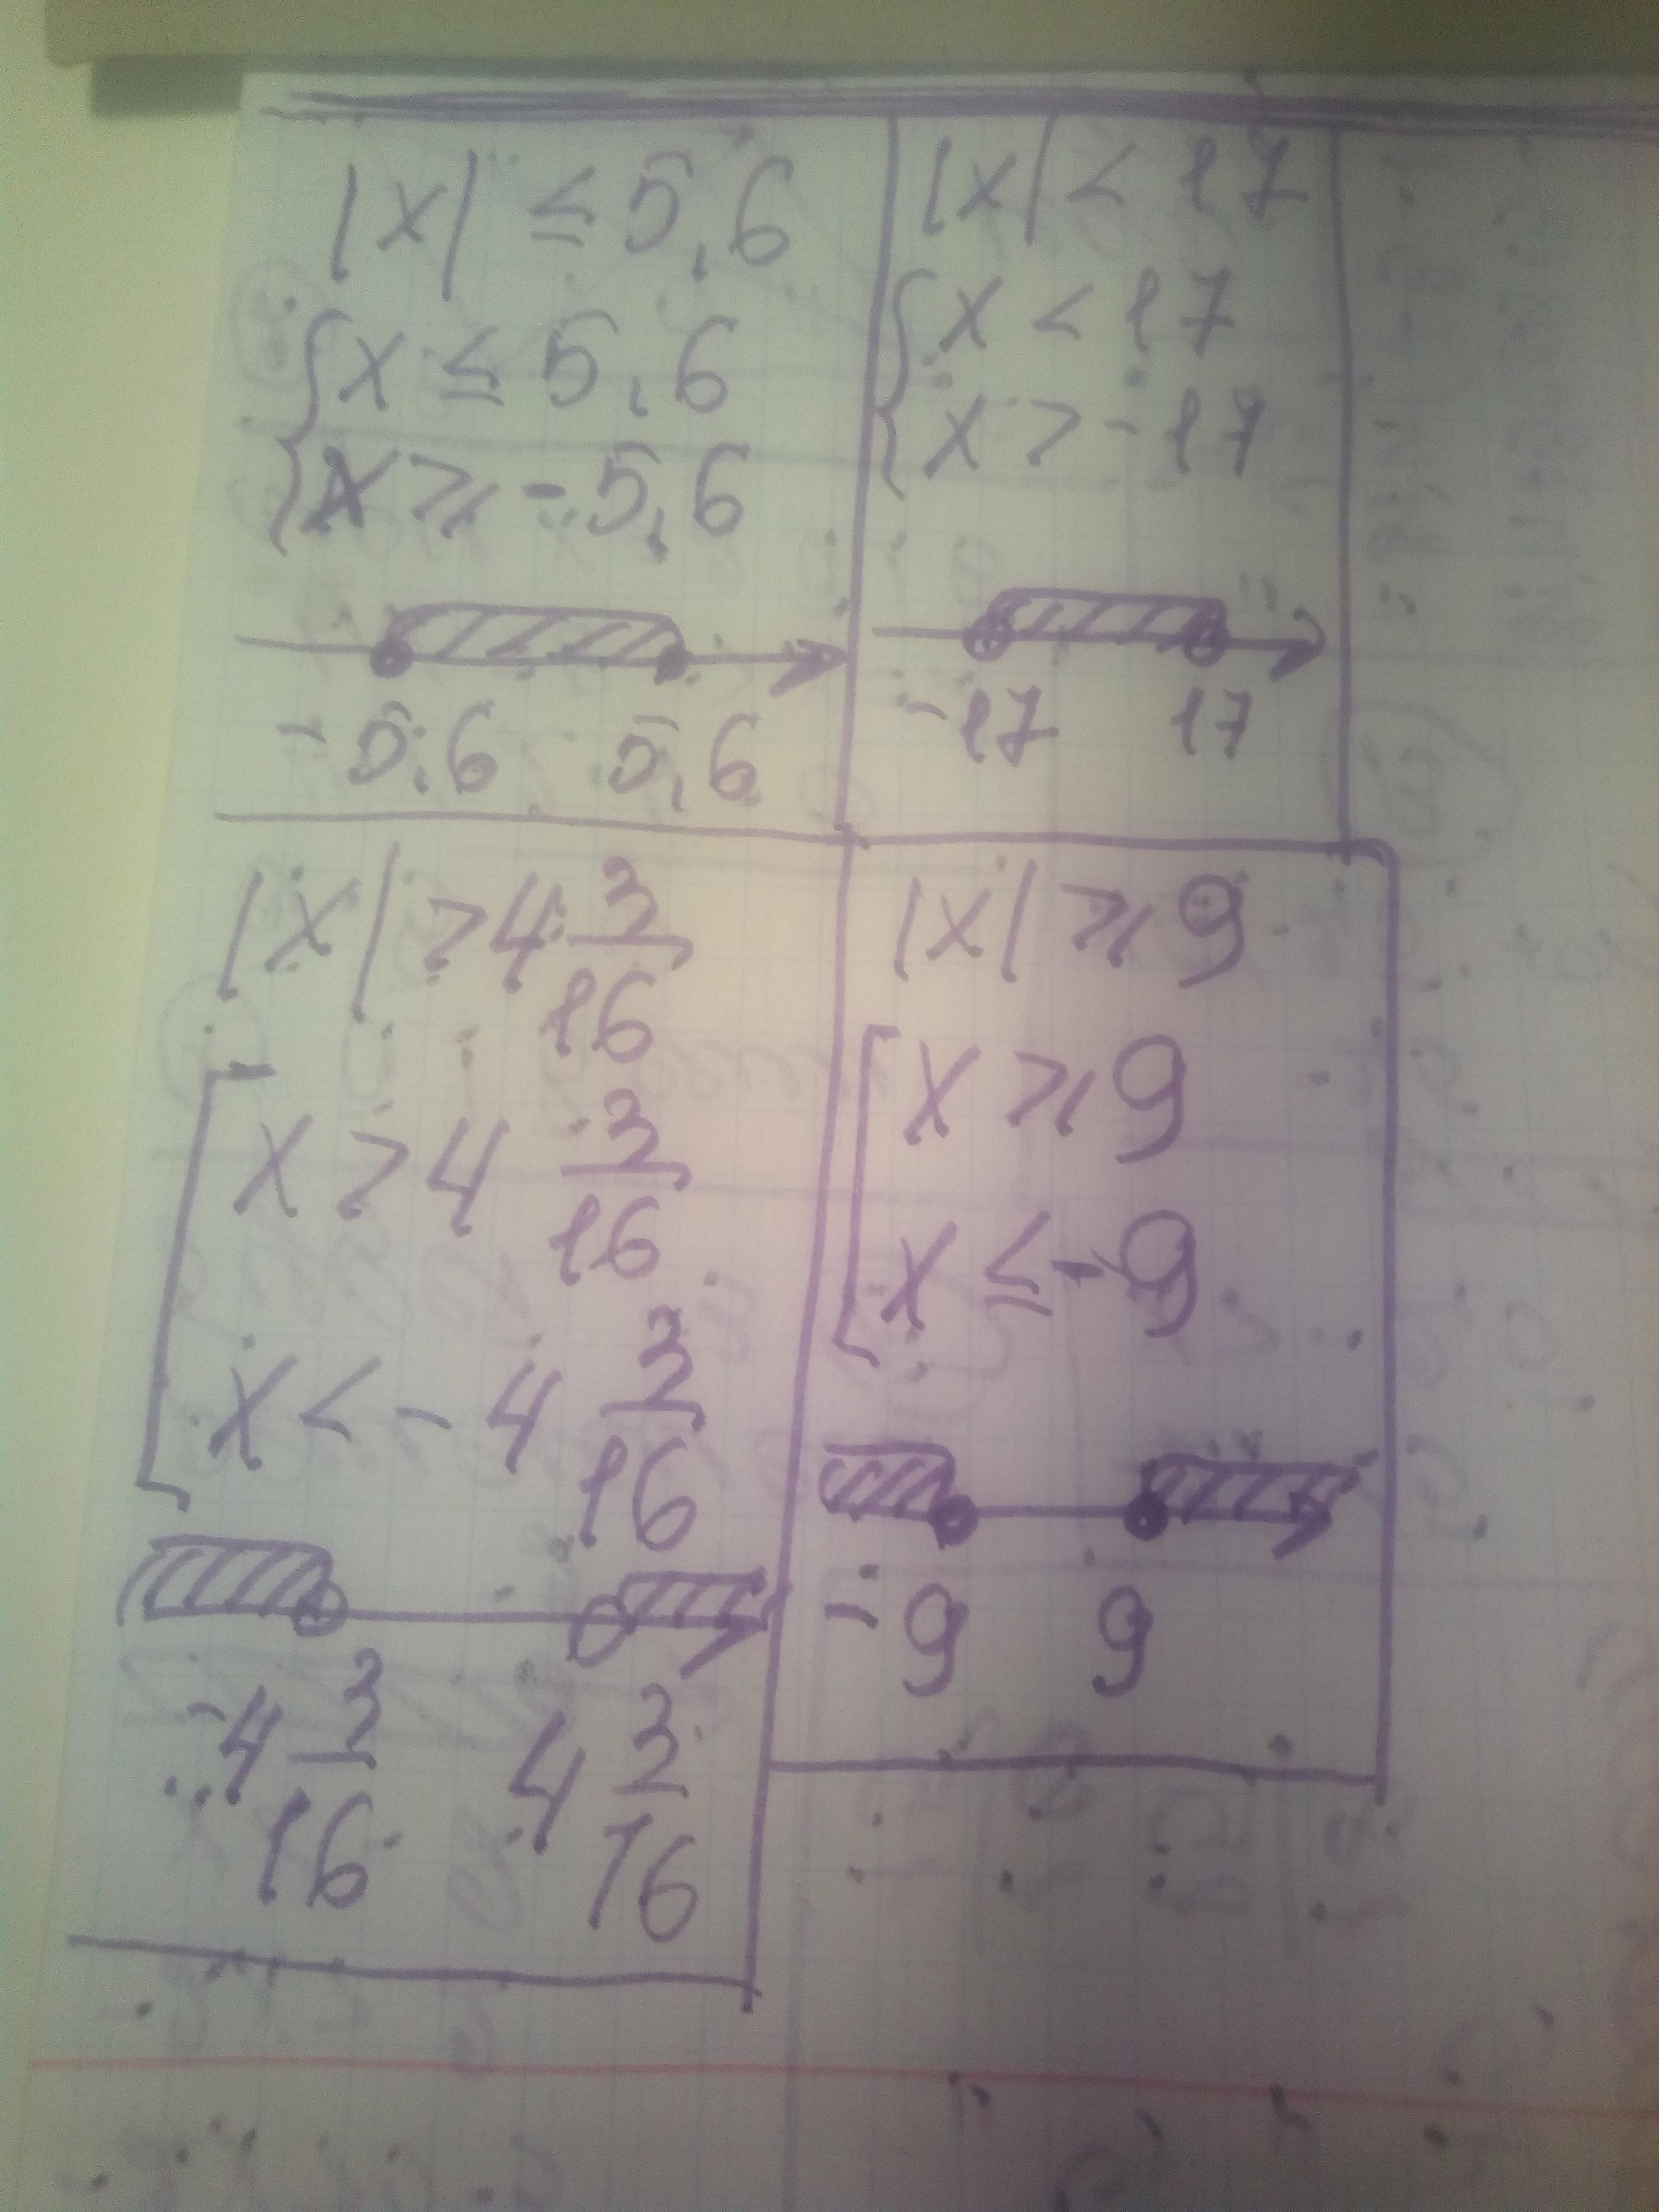 |x| ≤ 5,6
{x ≤ 5,6
x ≥ -5,6
-5,6 5,6
|x| < 17
{x < 17
x > -17
-17 17
|x| > 4 3/16
[x > 4 3/16
x < -4 3/16
-4 3/16 4 3/16
|x| ≥ 9
[x ≥ 9
x ≤ -9
-9 9